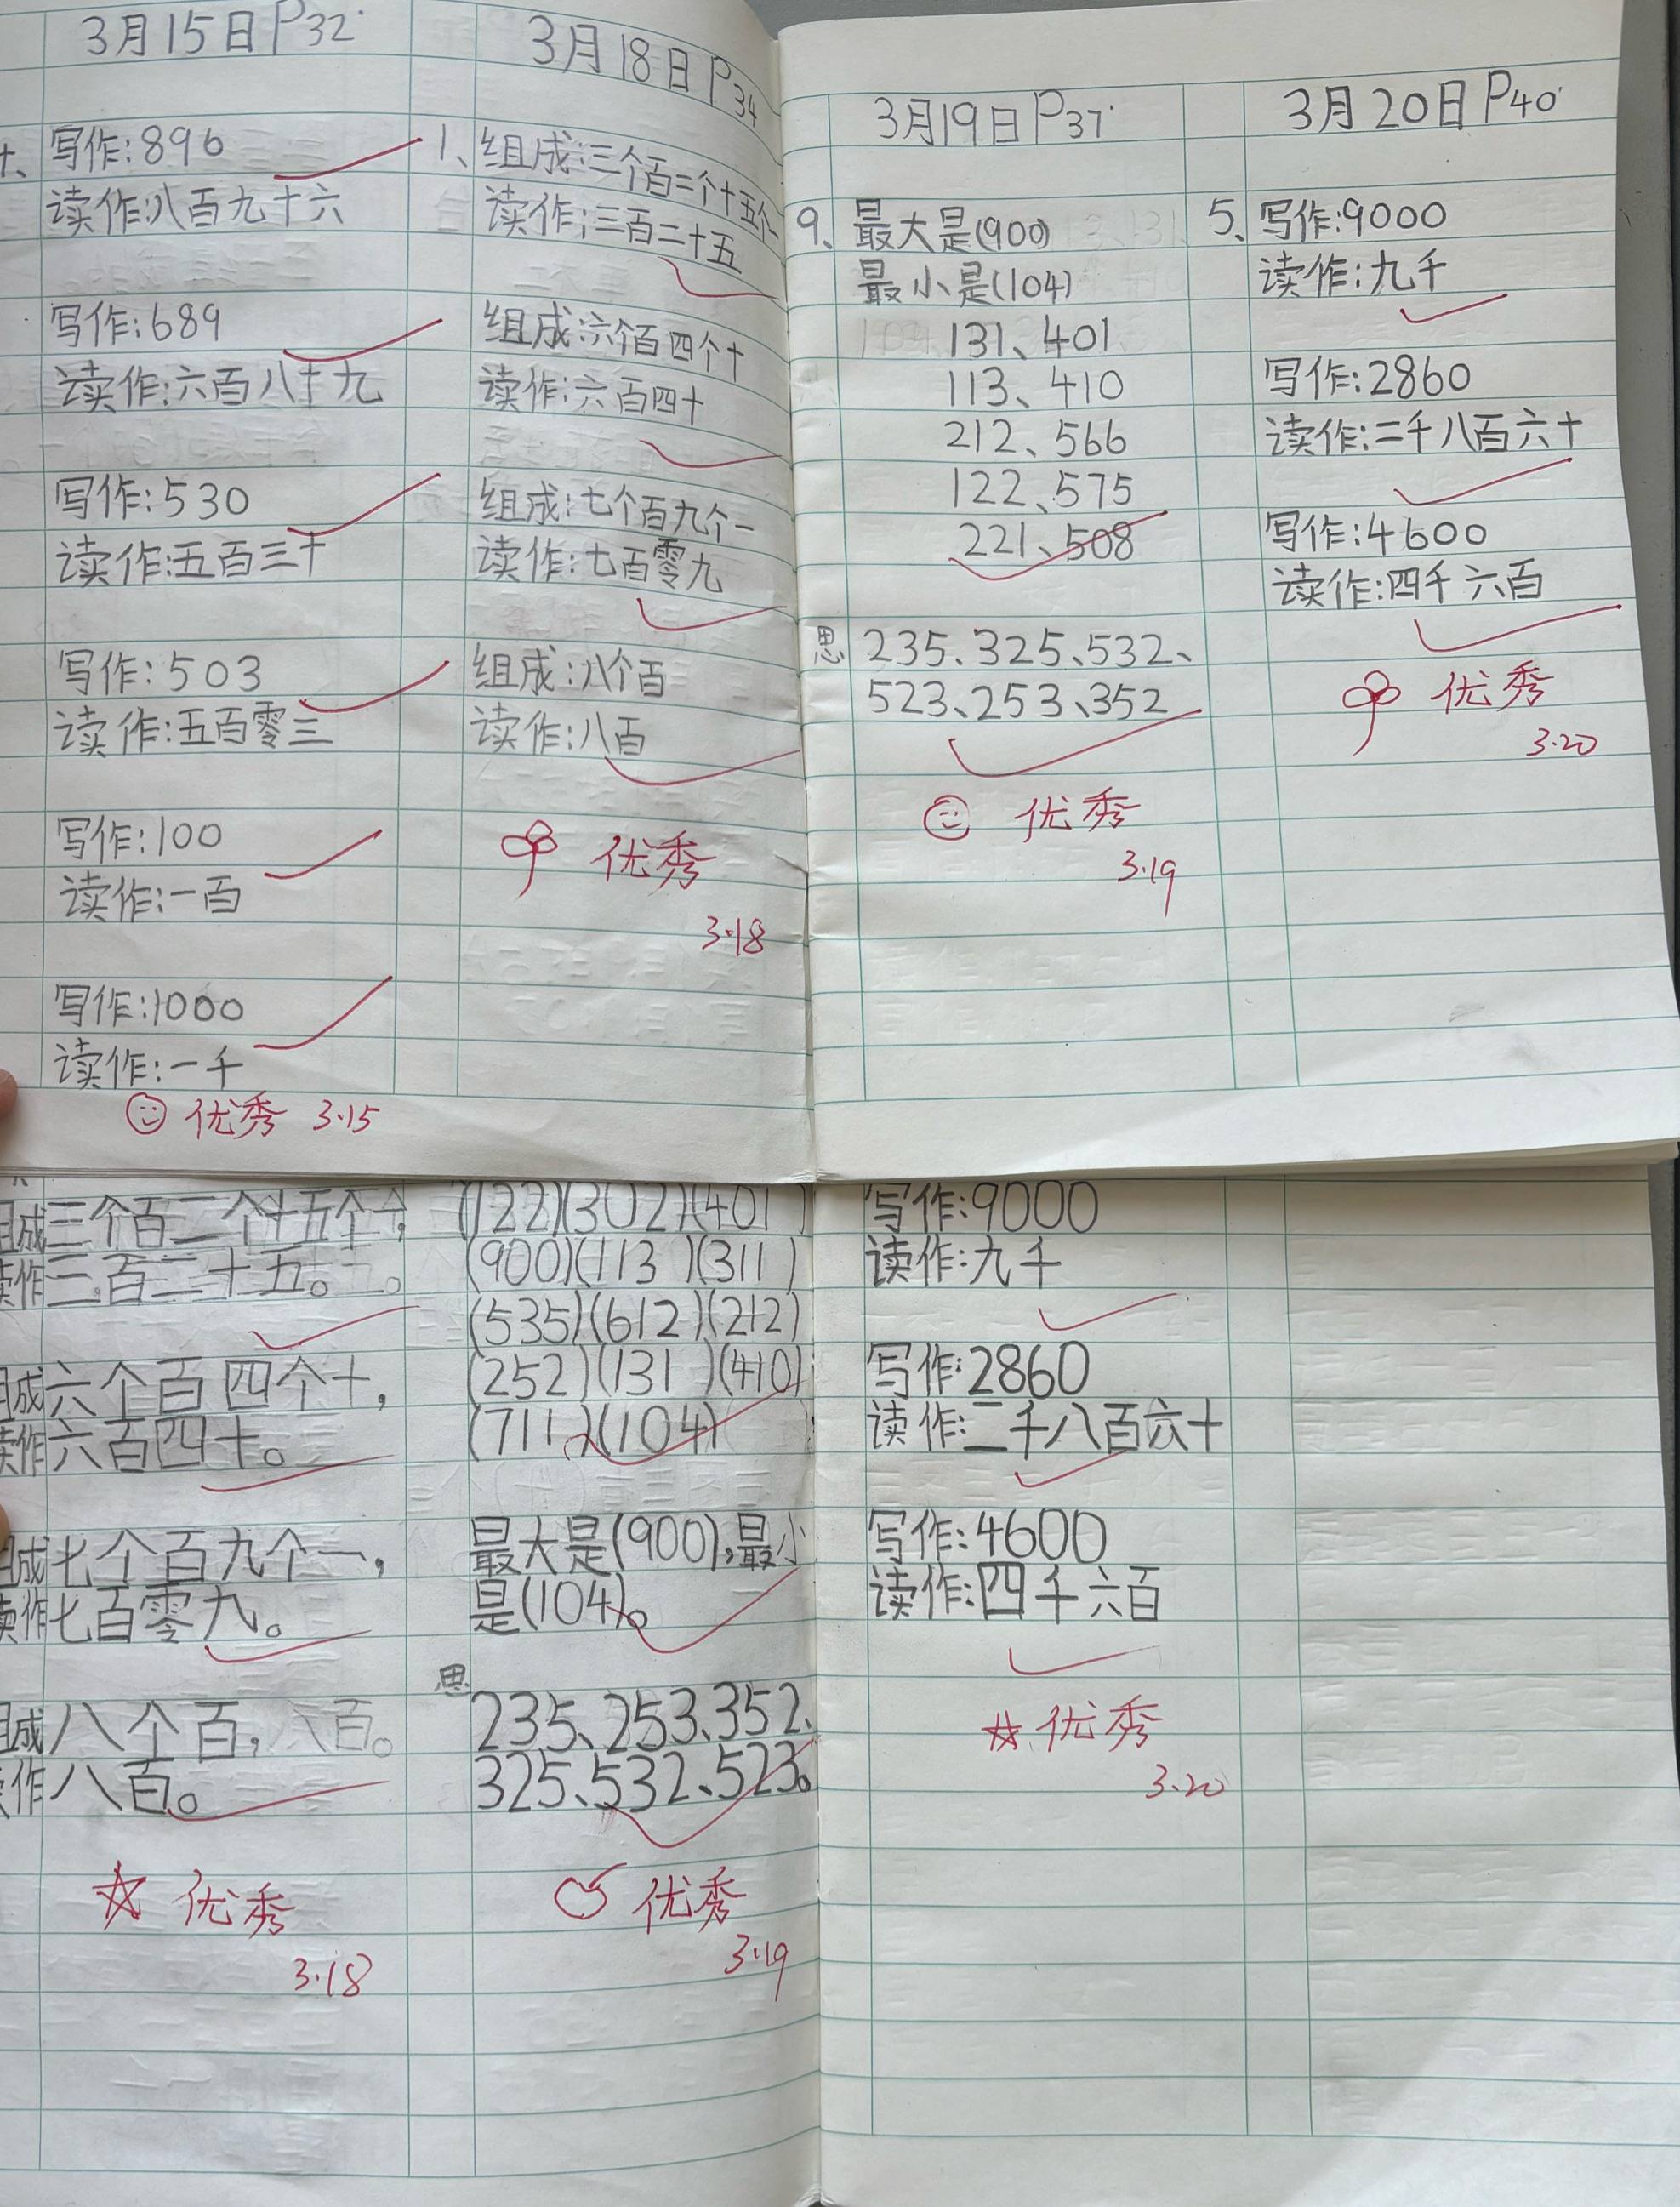 3月15日P32
写作:896
读作:八百九十六
写作:689
读作:六百八十九
写作:530
读作:五百三十
写作:503
读作:五百零三
写作:100
读作:一百
写作:1000
读作:一千
优秀 3.15
3月18日P34
1、组成:三个百二个十五个一
读作:三百二十五
组成:六个百四个十
读作:六百四十
组成:七个百九个一
读作:七百零九
组成:八个百
读作:八百
优秀
3.18
3月19日P37
9、最大是(900)
最小是(104)
131、401
113、410
212、566
122、575
221、508
思 235、325、532、
523、253、352
优秀
3.19
3月20日P40
5、写作:9000
读作:九千
写作:2860
读作:二千八百六十
写作:4600
读作:四千六百
优秀
3.20
组成三个百二个十五个一,
读作三百二十五。
组成六个百四个十,
读作六百四十。
组成七个百九个一,
读作七百零九。
组成八个百,
读作八百。
优秀
3.18
(122)(302)(401)
(900)(113)(311)
(535)(612)(212)
(252)(131)(410)
(711)(104)
最大是(900),最小
是(104)。
思 235、253、352、
325、532、523。
优秀
3.19
写作:9000
读作:九千
写作:2860
读作:二千八百六十
写作:4600
读作:四千六百
优秀
3.20